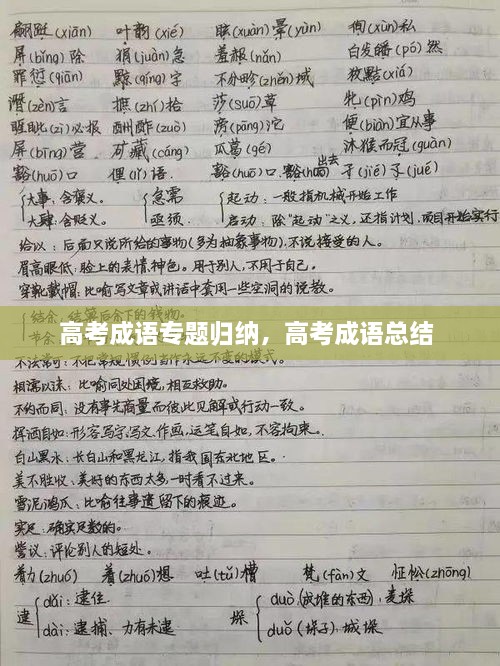 翩跹(xiān) 叶韵(xié) 眩(xuàn)晕(yùn) 徇(xùn)私
屏(bǐng)除 狷(juàn)急 羞赧(nǎn) 白发皤(pó)然
罪愆(qiān) 黥(qíng)字 不分畛(zhěn)域 狡黠(xiá)
谮(zèn)言 摭(zhí)拾 莎(suō)草 牝(pìn)鸡
睚眦(zì)必报 酬酢(zuò) 滂(pāng)沱 便(biàn)宜从事
屏(bīng)营 矿藏(cáng) 瓜葛(gé) 沐猴而冠(guàn)
豁(huō)口 俚(lǐ)语 豁(huō)口、豁(huō)出去 孑(jié)孓(jué)
大事:含褒义。 急需 起动:一般指机械开始工作
大肆:含贬义。 亟须 启动:除"起动"之义,还指计划、项目开始实行
给以:后面只说所给的事物(多为抽象事物),不说接受的人。
眉高眼低:脸上的表情、神色。用于别人,不用于自己。
穿靴戴帽:比喻写文章或讲话中套用一些空洞的说教。
结余:结算后余下的钱物。
高考成语专题归纳,高考成语总结
不法常可:不把常规惯例当作永远不变的模式。
相濡以沫:比喻同处困境,相互救助。
不约而同:没有事先商量而彼此见解或行动一致。
挥洒自如:形容写字、写文、作画,运笔自如,不容拘束。
白山黑水:长白山和黑龙江,指我国东北地区。
美不胜收:美好的东西太多,一时看不过来。
雪泥鸿爪:比喻往事遗留下的痕迹。
实足:确实足数的。
訾议:评论别人的短处。
着力(zhuó) 着(zhuó)想 吐(tǔ)槽 梵(fàn)文 怔忪(zhōng)
逮 dǎi:逮住 垛 duò(成堆的东西):麦垛
dài:逮捕、力有未逮 duǒ(垛子):城垛